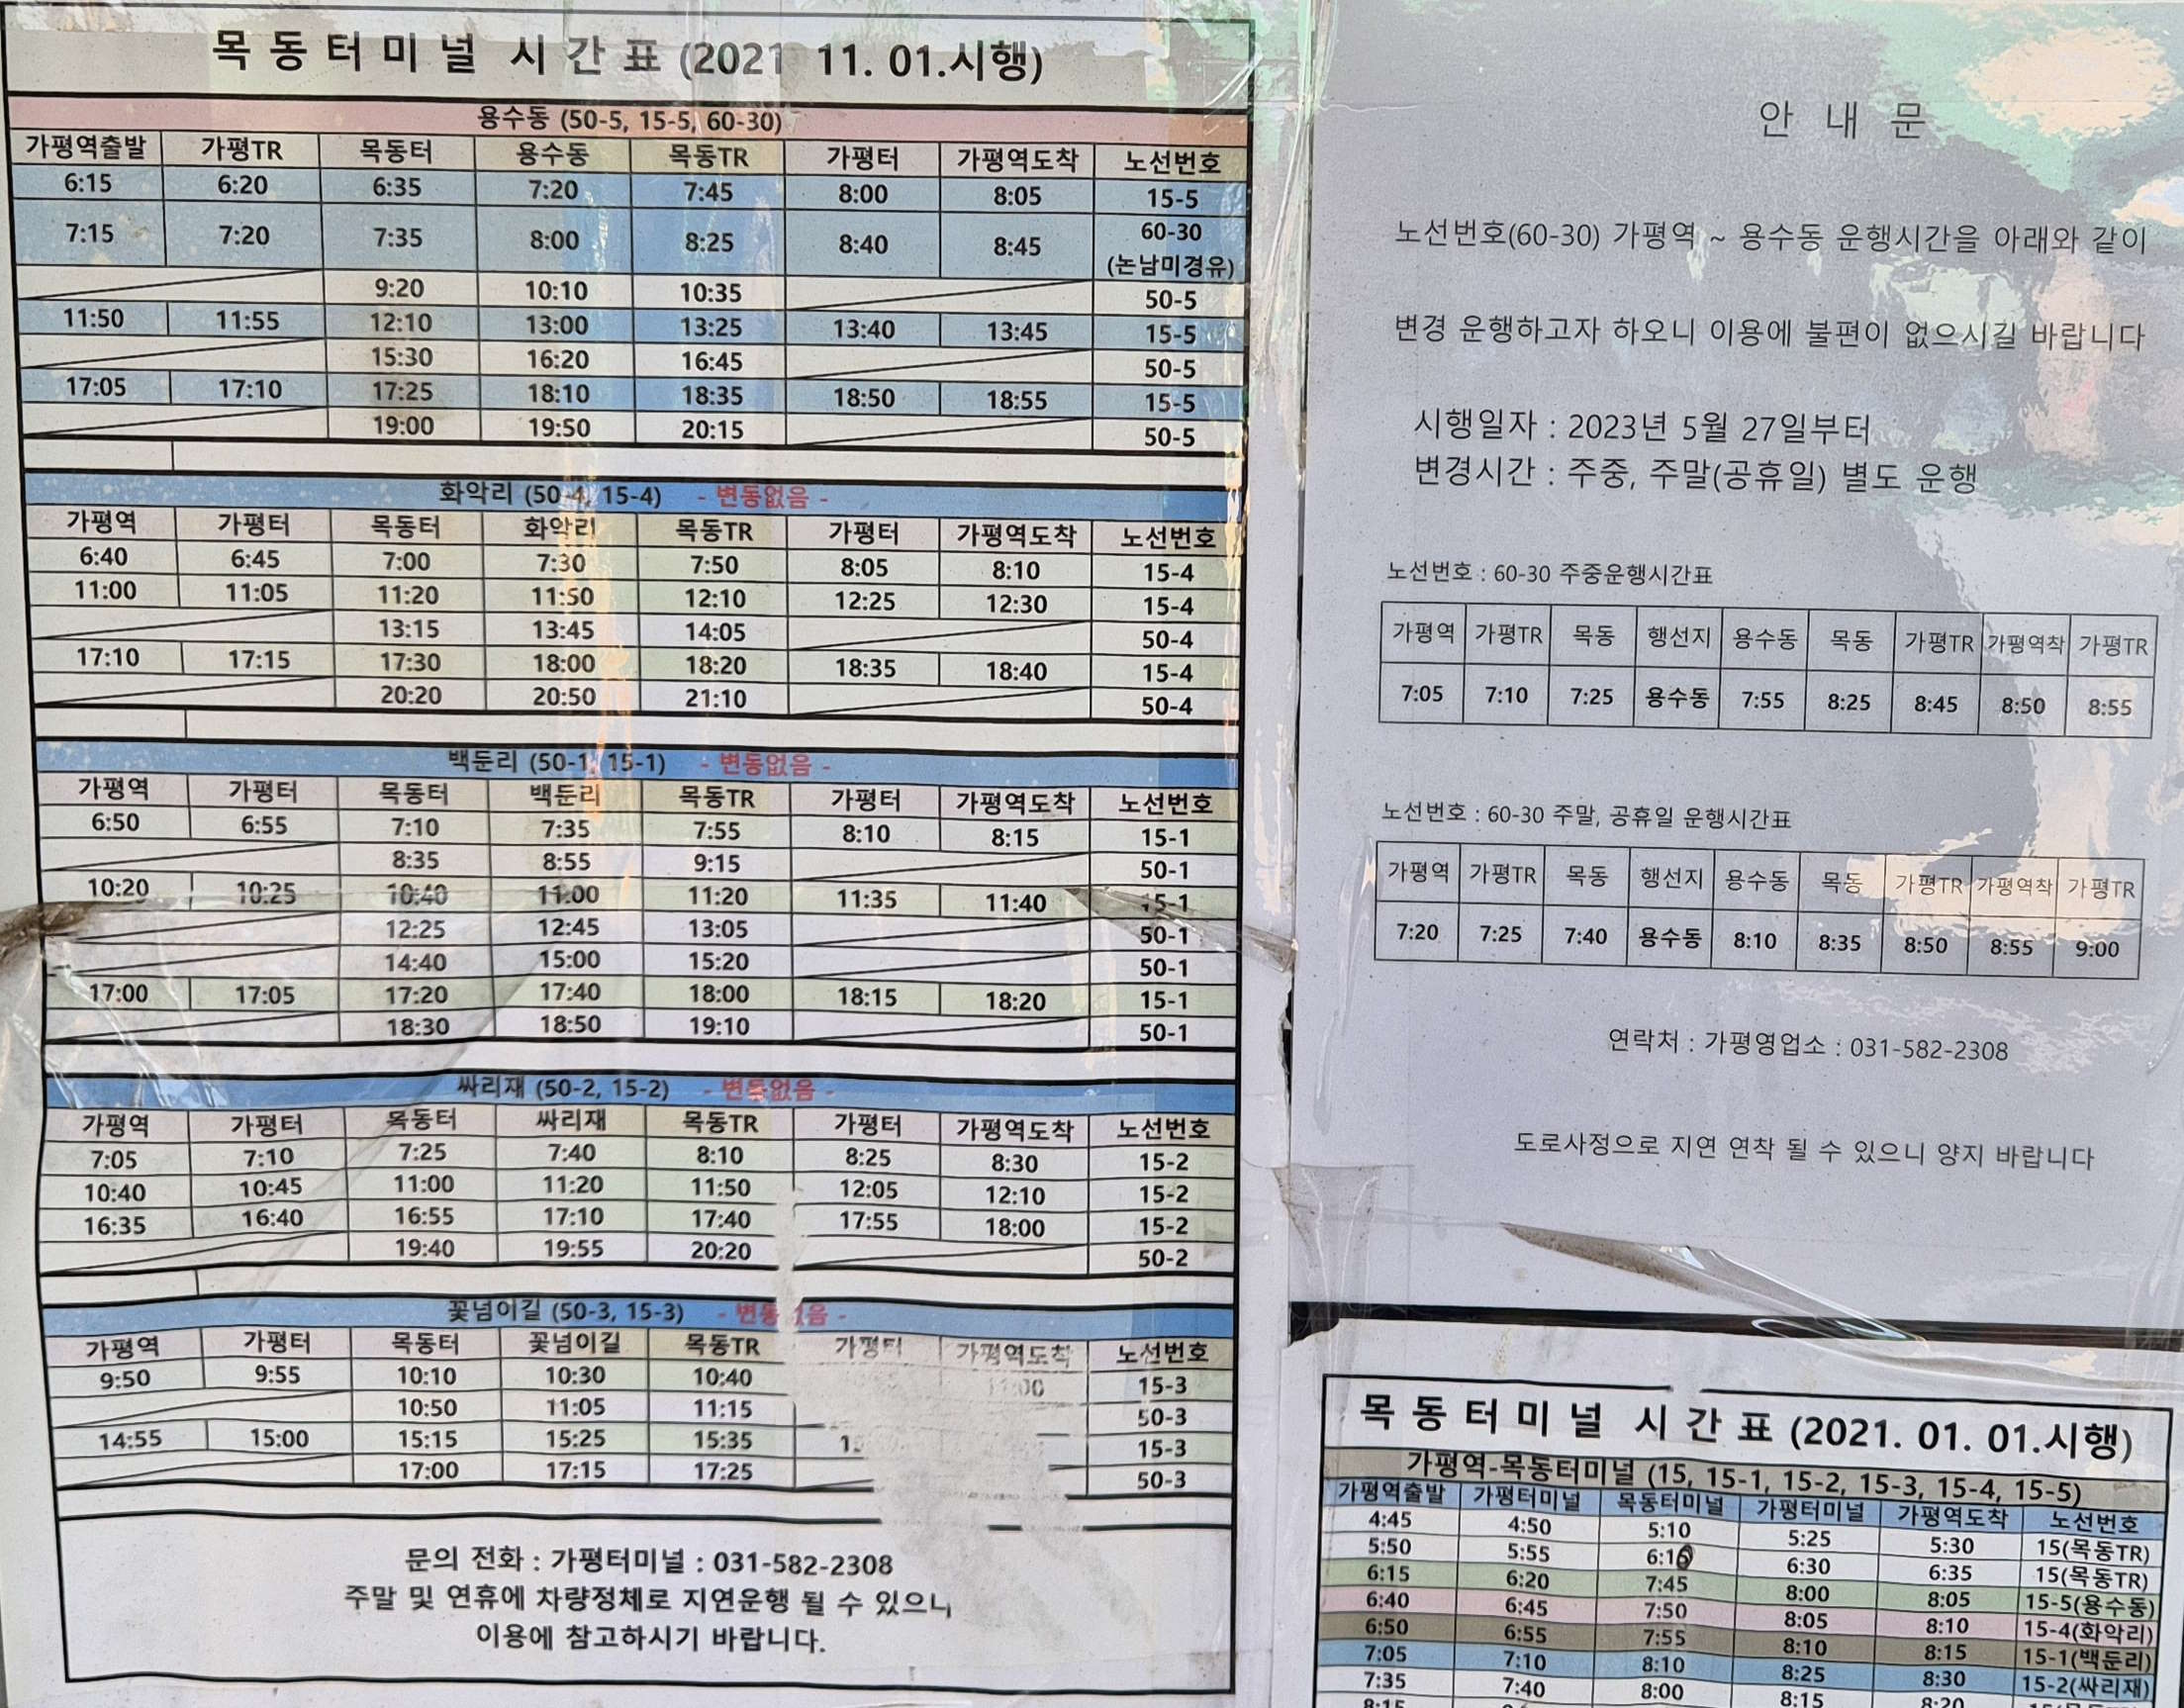 목동터미널 시간표 (2021 11. 01.시행)
용수동 (50-5, 15-5, 60-30)
가평역출발 가평TR 목동터 용수동 목동TR 가평터 가평역도착 노선번호
6:15 6:20 6:35 7:20 7:45 8:00 8:05 15-5
7:15 7:20 7:35 8:00 8:25 8:40 8:45 60-30
(논남미경유)
9:20 10:10 10:35 50-5
11:50 11:55 12:10 13:00 13:25 13:40 13:45 15-5
15:30 16:20 16:45 50-5
17:05 17:10 17:25 18:10 18:35 18:50 18:55 15-5
19:00 19:50 20:15 50-5
화악리 (50-4, 15-4) - 변동없음 -
가평역 가평터 목동터 화악리 목동TR 가평터 가평역도착 노선번호
6:40 6:45 7:00 7:30 7:50 8:05 8:10 15-4
11:00 11:05 11:20 11:50 12:10 12:25 12:30 15-4
13:15 13:45 14:05 50-4
17:10 17:15 17:30 18:00 18:20 18:35 18:40 15-4
20:20 20:50 21:10 50-4
백둔리 (50-1, 15-1) - 변동없음 -
가평역 가평터 목동터 백둔리 목동TR 가평터 가평역도착 노선번호
6:50 6:55 7:10 7:35 7:55 8:10 8:15 15-1
8:35 8:55 9:15 50-1
10:20 10:25 10:40 11:00 11:20 11:35 11:40 15-1
12:25 12:45 13:05 50-1
14:40 15:00 15:20 50-1
17:00 17:05 17:20 17:40 18:00 18:15 18:20 15-1
18:30 18:50 19:10 50-1
싸리재 (50-2, 15-2) - 변동없음 -
가평역 가평터 목동터 싸리재 목동TR 가평터 가평역도착 노선번호
7:05 7:10 7:25 7:40 8:10 8:25 8:30 15-2
10:40 10:45 11:00 11:20 11:50 12:05 12:10 15-2
16:35 16:40 16:55 17:10 17:40 17:55 18:00 15-2
19:40 19:55 20:20 50-2
꽃넘이길 (50-3, 15-3) - 변동
가평역 가평터 목동터 꽃넘이길 목동TR 가평터 가평역도착 노선번호
9:50 9:55 10:10 10:30 10:40 11:00 15-3
10:50 11:05 11:15 50-3
14:55 15:00 15:15 15:25 15:35 15-3
17:00 17:15 17:25 50-3
문의 전화 : 가평터미널 : 031-582-2308
주말 및 연휴에 차량정체로 지연운행 될 수 있으니
이용에 참고하시기 바랍니다.
안 내 문
노선번호(60-30) 가평역 ~ 용수동 운행시간을 아래와 같이
변경 운행하고자 하오니 이용에 불편이 없으시길 바랍니다
시행일자 : 2023년 5월 27일부터
변경시간 : 주중, 주말(공휴일) 별도 운행
노선번호 : 60-30 주중운행시간표
가평역 가평TR 목동 행선지 용수동 목동 가평TR 가평역착 가평TR
7:05 7:10 7:25 용수동 7:55 8:25 8:45 8:50 8:55
노선번호 : 60-30 주말, 공휴일 운행시간표
가평역 가평TR 목동 행선지 용수동 목동 가평TR 가평역착 가평TR
7:20 7:25 7:40 용수동 8:10 8:35 8:50 8:55 9:00
연락처 : 가평영업소 : 031-582-2308
도로사정으로 지연 연착 될 수 있으니 양지 바랍니다
목동터미널 시간표 (2021. 01. 01.시행)
가평역-목동터미널 (15, 15-1, 15-2, 15-3, 15-4, 15-5)
가평역출발 가평터미널 목동터미널 가평터미널 가평역도착 노선번호
4:45 4:50 5:10 5:25 5:30 15(목동TR)
5:50 5:55 6:30 6:35 15(목동TR)
6:15 6:20 7:45 8:00 8:05 15-5(용수동)
6:40 6:45 7:50 8:05 8:10 15-4(화악리)
6:50 6:55 7:55 8:10 8:15 15-1(백둔리)
7:05 7:10 8:10 8:25 8:30 15-2(싸리재)
7:35 7:40 8:00 8:15 8:20
8:15